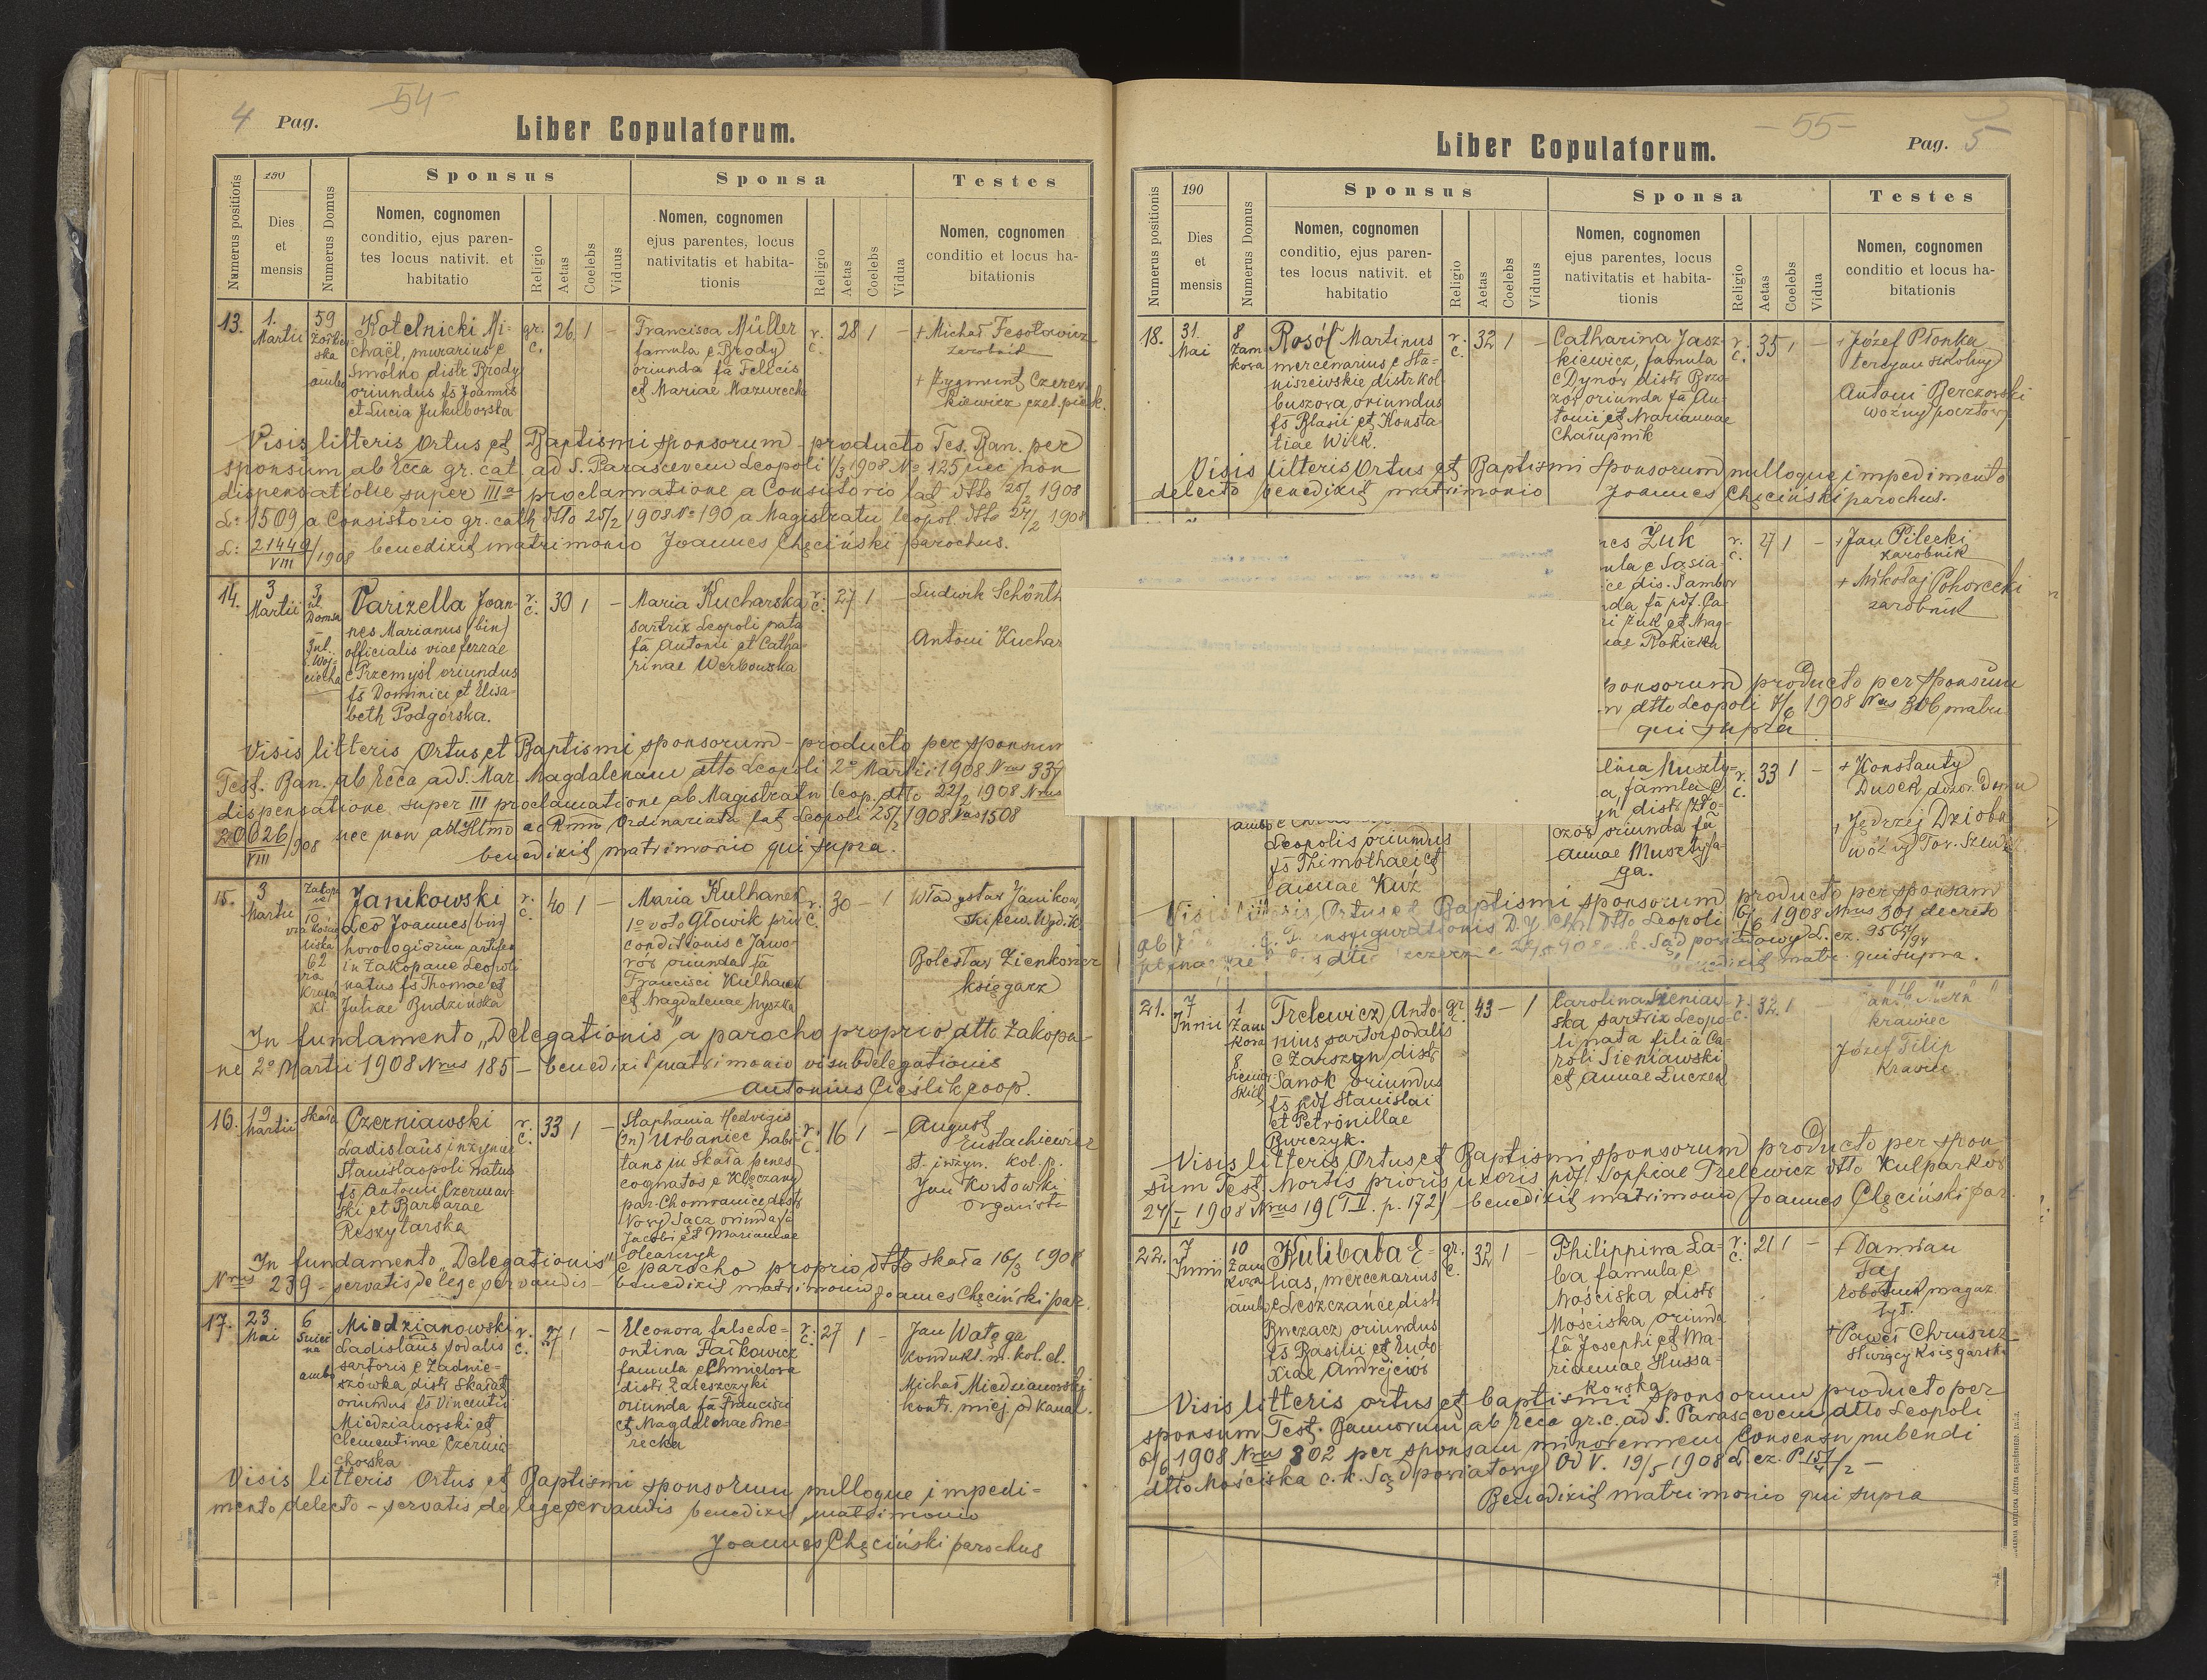 4 Pag.
54
Liber Copulatorum.
Numerus positionis
190
Dies
et
mensis
Numerus Domus
Sponsus
Nomen, cognomen
conditio, ejus paren-
tes locus nativit. et
habitatio
Religio
Aetas
Coelebs
Viduus
Sponsa
Nomen, cognomen
ejus parentes, locus
nativitatis et habita-
tionis
Religio
Aetas
Coelebs
Vidua
Testes
Nomen, cognomen
conditio et locus ha-
bitationis
13.
1.
Martii
59
ambo
Kotelnicki Mi-
chaël, murarius e
Smólno distr. Brody
oriundus fs Joannis
et Lucia Jakubowska
gr.
c.
26 1 –
Francisca Müller
famula e Brody
oriunda fa Felicis
et Mariae Mazurecka
r.
c.
28 1 –
+ Michał Fesołowicz
zarobnik
+ Zygmunt Czerew-
kiewicz czel. piek.
Visis litteris Ortus et Baptismi sponsorum – producto Tes. Ban. per
sponsum ab Ecca gr. cat. ad S. Parascevem Leopoli 1/3 1908 No 125 nec non
dispensatione super IIIa proclamatione a Consistorio lat dtto 25/2 1908
L: 1509 a Consistorio gr. cath dtto 25/2 1908 No 190 a Magistratu leopol. dtto 27/2 1908
L: 21449/VIII/1908 benedixit matrimonio Joannes Chęciński parochus.
14.
3
Martii
3
ul.
Domsa
Jul.
s. Woj-
ciecha
Parizella Joan-
nes Marianus (bin)
officialis viae ferrae
e Przemyśl oriundus
fs Dominici et Elisa-
beth Podgórska.
r.
c.
30 1 –
Maria Kucharska
sartrix Leopoli nata
fa Antonii et Catha-
rinae Werbowska
r.
c.
27 1 –
Ludwik Schönth
Antoni Kuchar
Visis litteris Ortus et Baptismi sponsorum – producto per sponsum
Test. Ban. ab Ecca ad S. Mar. Magdalenam dtto Leopoli 2o Martii 1908 Nrus 337
dispensatione super III proclamatione ab Magistratu leop. dtto 22/2 1908 Nrus
20626/VIII/1908 nec non ab Illmo ac Rmmo Ordinariatu lat Leopoli 25/2 1908 Nrus 1508
benedixit matrimonio qui supra.
15.
3
Martii
Zakopa
ne
10
62
via
Janikowski
Leo Joannes (bin)
horologiorum artifex
in Zakopane Leopoli
natus fs Thomae et
Juliae Budzińska
r.
c.
40 1
Maria Kulhanek
1o voto Głowik priv.
conditionis e Jawo-
rów oriunda fa
Francisci Kulhanek
et Magdalenae Myszka
r.
c.
30 – 1
Władysław Janikow-
Bolesław Zienkowicz
księgarz
In fundamento „Delegationis" a parocho proprio dtto Zakopa-
ne 2o Martii 1908 Nrus 185 – benedixit matrimonio vi subdelegationis
Antonius Cieślik coop.
16.
19
Martii
Skała
Czerniawski
Ladislaus inżynier
Stanislaopoli natus
fs Antoni Czerniaw-
ski et Barbarae
Reszytarska
r.
c.
33 1 –
Stephania Hedvigis
(bin) Urbaniec habi-
tans in Skała penes
cognatos e Klęczany
par. Chomranice distr.
Nowy Sącz oriunda fa
Jacobi et Mariannae
Olearczyk
r.
c.
16 1 –
August
Eustachiewicz
st. inżyn. kol. p.
Jan Kortowski
organista
In fundamento „Delegationis" e parocho proprio dtto Skała 16/3 1908
Nrus 239 – servatis de lege servandis – benedixit matrimonio Joannes Chęciński par.
17.
23
Mai
6
ambo
Miedzianowski
Ladislaus sodalis
sartoris e Zadnie-
szówka distr. Skałat
oriundus fs Vincentii
Miedzianowski et
Clementinae Czernie-
chowska
r.
c.
27 1 –
Eleonora false Le-
ontina Faikowicz
famula e Chmielowa
distr. Zaleszczyki
oriunda fa Francisci
et Magdalenae Sme-
recka
r.
c.
27 1 –
Jan Watęga
kondukt. m. kol. el.
Michał Miedzianowski
kontr. miej. od kanal.
Visis litteris Ortus et Baptismi sponsorum nulloque impedi-
mento delecto – servatis de lege servandis benedixit matrimonio
Joannes Chęciński parochus
– 55 –
Pag. 5
Liber Copulatorum.
Numerus positionis
190
Dies
et
mensis
Numerus Domus
Sponsus
Nomen, cognomen
conditio, ejus paren-
tes locus nativit. et
habitatio
Religio
Aetas
Coelebs
Viduus
Sponsa
Nomen, cognomen
ejus parentes, locus
nativitatis et habita-
tionis
Religio
Aetas
Coelebs
Vidua
Testes
Nomen, cognomen
conditio et locus ha-
bitationis
18.
31.
Mai
8
Zam
kowa
Rosół Martinus
mercenarius e Sta-
niszewskie distr Kol-
buszowa oriundus
fs Blasii et Konsta-
tiae Wilk.
r.
c.
32 1 –
Catharina Jasz-
kiewicz, famula
e Dynów distr Brzo-
zów oriunda fa An-
tonii et Mariannae
Chałupnik
r.
c.
35 1 –
+ Józef Płonka
tercyan szkolny
Antoni Berezowski
woźny pocztowy
Visis litteris Ortus et Baptismi Sponsorum nulloque impedimento
delecto benedixit matrimonio Joannes Chęciński parochus.
nes Żuk
mula e Sąsia-
ice dis. Sambor
nda fa pdf. Ca-
ri Żuk et Mag-
nae Rokicka
r.
c.
27 1 –
+ Jan Pilecki
zarobnik
+ Mikołaj Pohorecki
zarobnik
ponsorum producto per sponsum
m dtto Leopoli 7/6 1908 Nrus 306 matri.
qui supra
ambo
Leopolis oriundus
fs Thimothaei et
Annae Kuź
lina Muszty-
a, famula e
yn, distr. Zło-
czów oriunda fa
Annae Musztya-
ga.
r.
c.
33 1 –
+ Konstanty
Dusek, dozor. Domu
+ Jędrzej Dzioba
woźny Tow. Szewc
Visis litteris Ortus et Baptismi sponsorum producto per sponsam
ab Transfigurationis D. J. Chr. dtto Leopoli 6/6 1908 Nrus 301 decreto
c. k. Sąd powiatowy L. cz.
benedixit matr. qui supra.
21.
7
Junii
1
Zam
kowa
8
Sieniaw-
skich
Trelewicz Anto-
nius sartor sodalis
e Zarszyn distr
Sanok oriundus
fs pdf Stanislai
et Petronillae
Burczyk.
gr.
c.
43 – 1
Carolina Sieniaw-
ska sartrix Leopo-
li nata filia Ca-
roli Sieniawski
et Annae Łuczek
r.
c.
32 1
krawiec
Józef Filip
krawiec
Visis litteris Ortus et Baptismi sponsorum producto per spon-
sum Test. Mortis prioris uxoris pdf. Sophiae Trelewicz dtto Kulparków
27/I 1908 Nrus 19 (T II. p. 172) – benedixit matrimonio Joannes Chęciński par.
22.
7
Junii
10
Zam
kowa
ambo
Kulibaba E-
lias, mercenarius
e Leszczańce distr
Buczacz oriundus
fs Basilii et Eudo-
xiae Andrejciów
gr.
c.
32 1
Philippina Ła-
ba famula e
Mościska distr
Mościska oriunda
fa Josephi et Ma-
riannae Hussa-
kowska
r.
c.
21 1 –
+ Damian
Saj
robotnik magaz.
tyt.
+ Paweł Chruszcz
służący księgarski
Visis litteris ortus et baptismi sponsorum producto per
sponsum Test. Bannorum ab Ecca gr. c. ad S. Parascevem dtto Leopoli
6/6 1908 Nrus 302 per sponsam minorennem Consensu nubendi
dtto Mościska c. k. Sąd powiatowy Od V. 19/5 1908 L. cz. P 157/4/2 –
Benedixit matrimonio qui supra